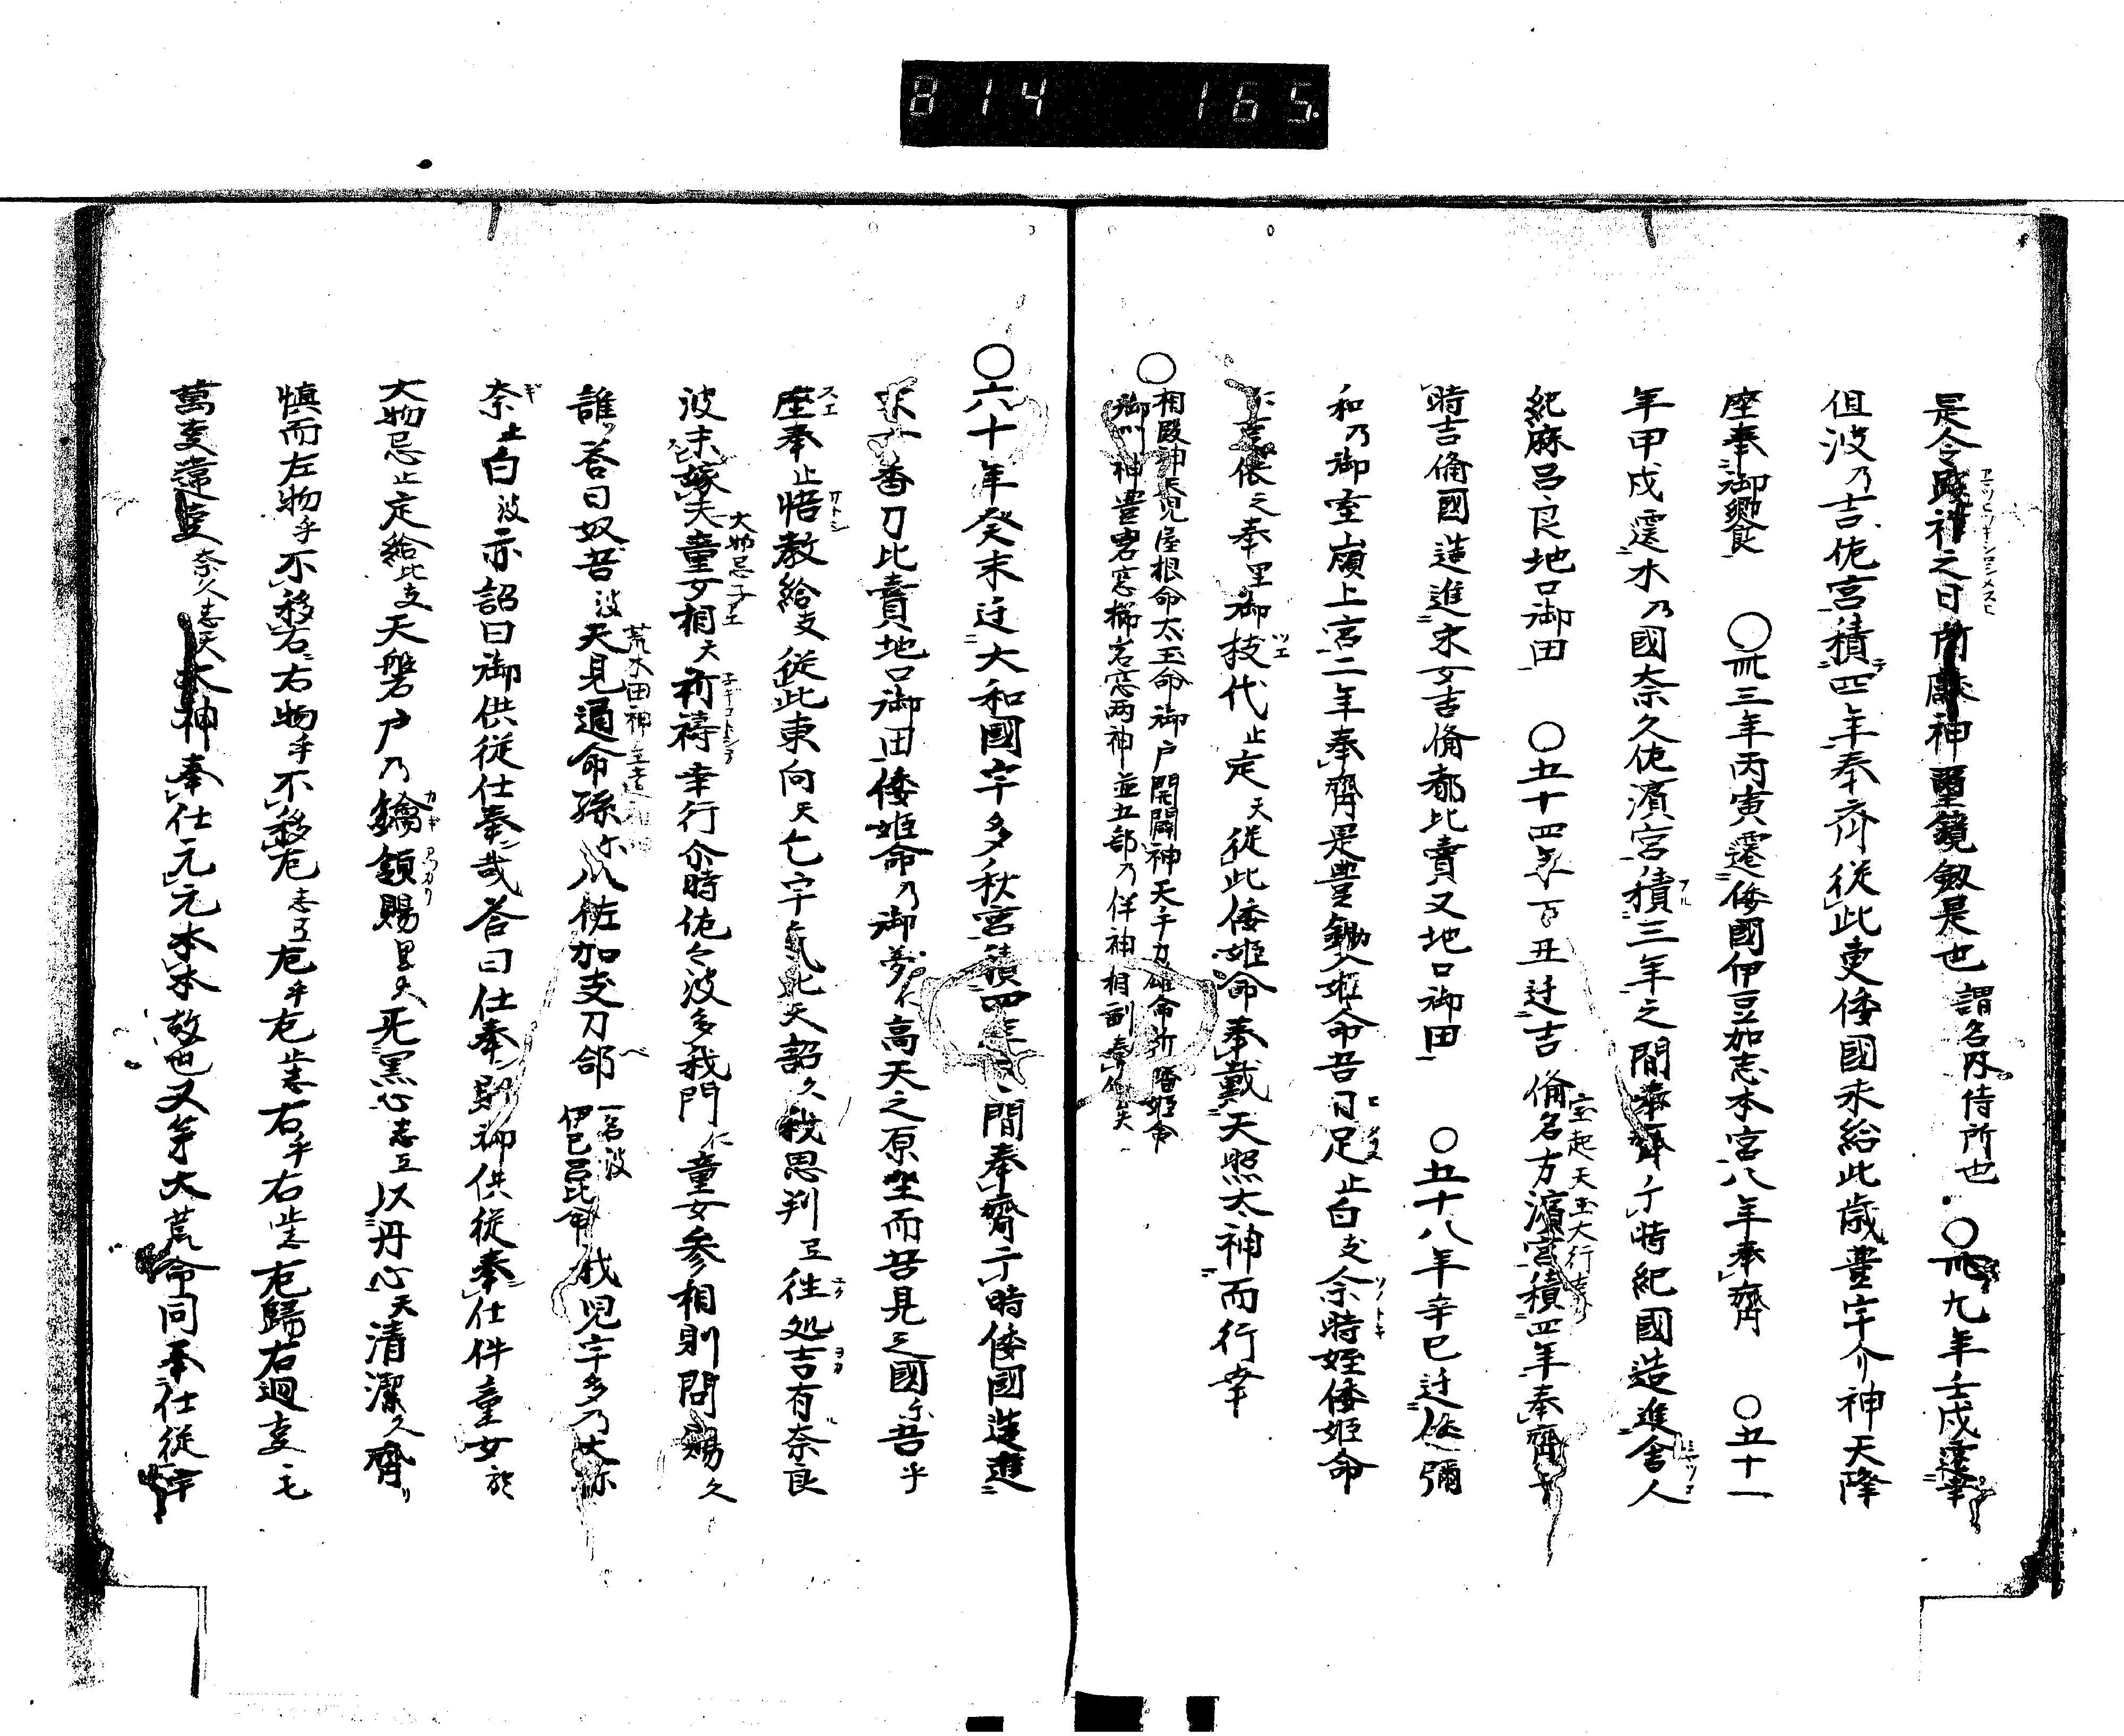 814 165.
是今踐祚之日所獻神璽鏡劔是也 謂名内侍所也 ○卅九年壬戌遷幸
但波乃吉佐宮積四年奉齊従此更倭國求給此歳豊宇介神天降
座奉御饗 ○卌三年丙寅遷倭國伊豆加志本宮八年奉齊 ○五十一
年甲戌遷木乃國奈久佐濱宮積三年之間奉齊于時紀國造進舎人
紀麻呂良地口御田 ○五十四年丁丑迁吉備名方濱宮積四年奉齊于
時吉備國造進采女吉備都比賣又地口御田 ○五十八年辛巳迁倭弥
和乃御室嶺上宮二年奉齊是豊鋤入姫命吾日足止白支尒時姪倭姫命
仁事依之奉里御杖代止定天従此倭姫命奉戴天照太神而行幸
○相殿神天児屋根命太玉命御戸開闢神天手力雄命
御門神豊石窓櫛石窓両神並五部乃伴神相副奉仕矣
○六十年癸未迁大和國宇多秋宮積四年之間奉齊于時倭國造進
采女香刀比賣地口御田倭姫命乃御夢仁高天之原坐而吾見之國尓吾乎
座奉止悟教給支従此東向天乞宇気比天詔久我思判弖往処吉有奈良
波未嫁夫童女相天祈祷幸行尒時佐々波多我門仁童女参相則問賜久
誰答曰奴吾波天見通命孫尓八佐加支刀部 一名波伊己呂比命 我児宇多乃大祢
奈止白波亦詔曰御供従仕奉哉答曰仕奉則御供従奉仕件童女於
大物忌止定給比支天磐戸乃鑰領賜里天无黒心志弖以丹心天清潔久齊
慎而左物乎不移右右物乎不移左志弖左乎左止志右乎右止志左歸右廻事毛
萬事違事奈久志天太神奉仕元元本本故也又弟大荒命同奉仕従宇